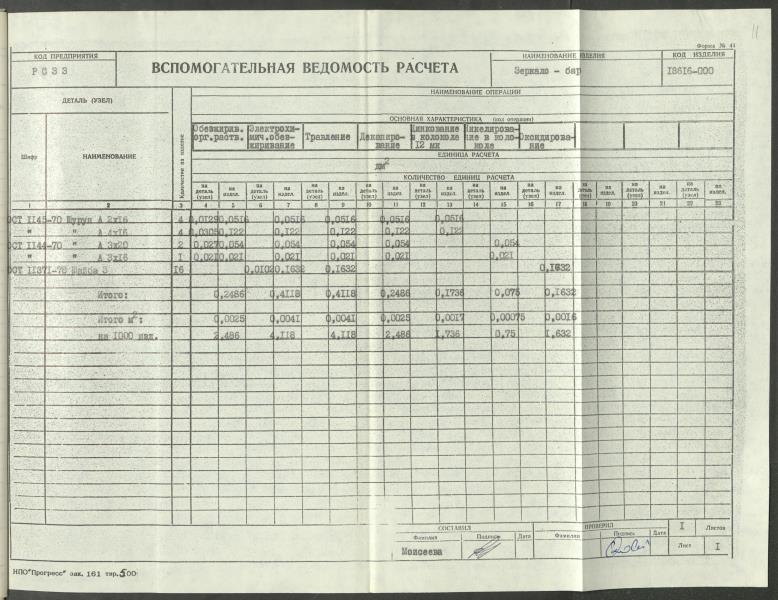 11
Форма № 44
КОД ПРЕДПРИЯТИЯ
РСЗЗ
ВСПОМОГАТЕЛЬНАЯ ВЕДОМОСТЬ РАСЧЕТА
НАИМЕНОВАНИЕ ИЗДЕЛИЯ
Зеркало - бар
КОД ИЗДЕЛИЯ
18616-000
ДЕТАЛЬ (УЗЕЛ)
Количество на изделие
НАИМЕНОВАНИЕ ОПЕРАЦИИ
ОСНОВНАЯ ХАРАКТЕРИСТИКА (код операции)
Шифр
НАИМЕНОВАНИЕ
Обезжирив. орг.раств.
Электрохимич.обезжиривание
Травление
Декапирование
Цинкование в колокола 12 мк
Никелирование в колоколе
Оксидирование
ЕДИНИЦА РАСЧЕТА
дм2
КОЛИЧЕСТВО ЕДИНИЦ РАСЧЕТА
на деталь (узел) на издел. на деталь (узел) на издел. на деталь (узел) на издел. на деталь (узел) на издел. на деталь (узел) на издел. на деталь (узел) на издел. на деталь (узел) на издел. на деталь (узел) на издел. на деталь (узел) на издел. на деталь (узел) на издел.
1 2 3 4 5 6 7 8 9 10 11 12 13 14 15 16 17 18 19 20 21 22 23
ОСТ 1145-70 Шуруп А 2х16 4 0,0129 0,0516 0,0516 0,0516 0,0516 0,0516
" " А 4х16 4 0,0305 0,122 0,122 0,122 0,122 0,122
ОСТ 1144-70 " А 3х20 2 0,027 0,054 0,054 0,054 0,054 0,054
" " А 3х16 1 0,021 0,021 0,021 0,021 0,021 0,021
ОСТ 11371-78 Шайба 3 16 0,0102 0,1632 0,1632 0,1632
Итого: 0,2486 0,4118 0,4118 0,2486 0,1736 0,075 0,1632
Итого м2: 0,0025 0,0041 0,0041 0,0025 0,0017 0,00075 0,0016
на 1000 изд. 2,486 4,118 4,118 2,486 1,736 0,75 1,632
СОСТАВИЛ
ПРОВЕРИЛ
1
Листов
Фамилия Подпись Дата Фамилия Подпись Дата
Моисеева
Лист
1
НПО"Прогресс" зак. 161 тир.500